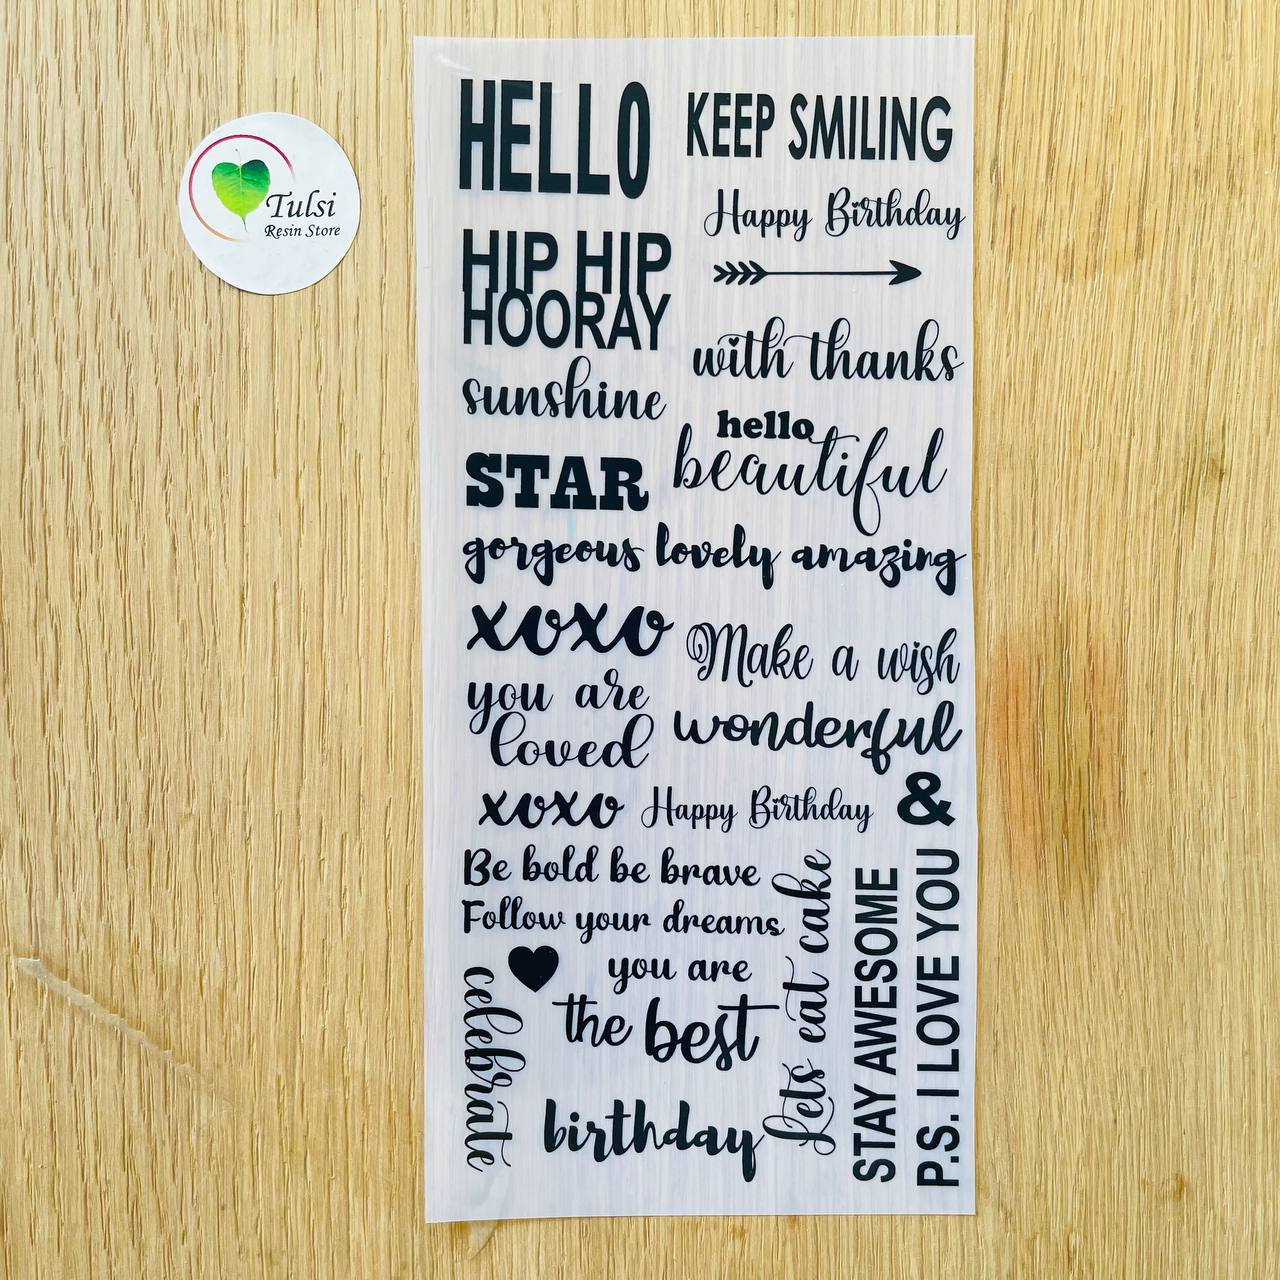 Tulsi
Resin Store
HELLO
KEEP SMILING
Happy Birthday
HIP HIP
HOORAY
with thanks
sunshine
hello
beautiful
STAR
gorgeous lovely amazing
xoxo
Make a wish
you are
loved
wonderful
xoxo Happy Birthday &
Be bold be brave
Follow your dreams
you are
the best
celebrate
birthday
Lets eat cake
STAY AWESOME
P.S. I LOVE YOU